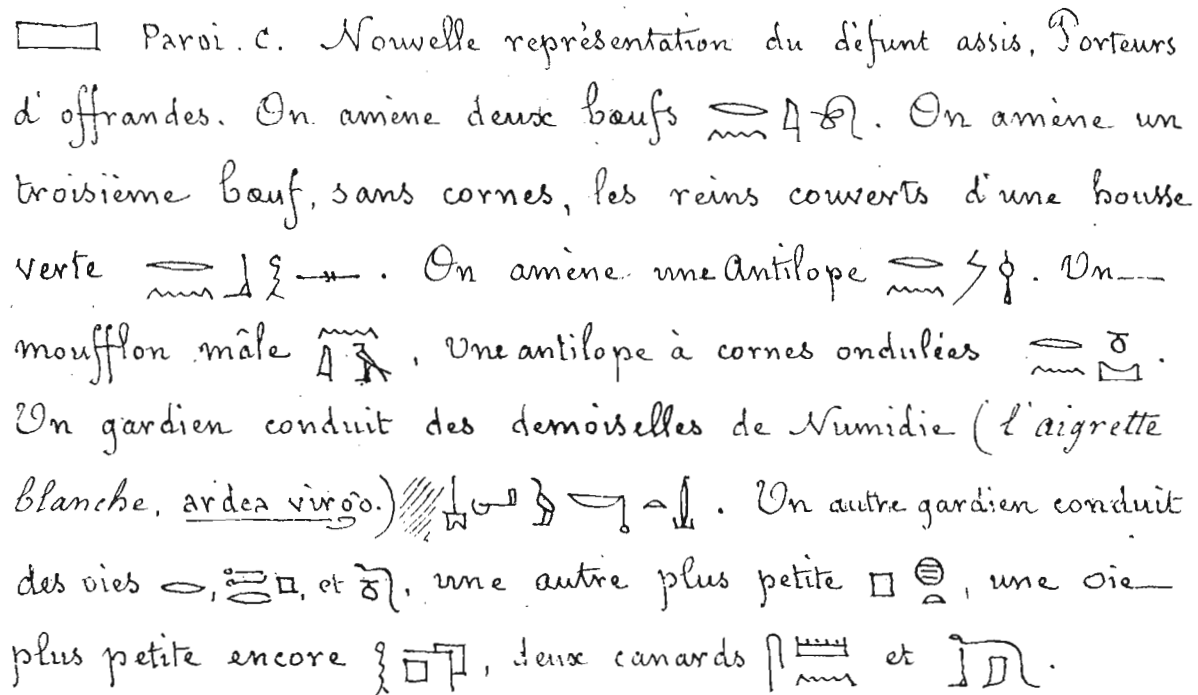 Paroi. C. Nouvelle représentation du défunt assis, Porteurs
d'offrandes. On amène deux bœufs 𓂋𓈖. On amène un
troisième bœuf, sans cornes, les reins couverts d'une housse
verte 𓂋𓈖𓃀𓅱𓊃. On amène une Antilope 𓂋𓈖. Un
moufflon mâle, Une antilope à cornes ondulées 𓂋𓈖.
Un gardien conduit des demoiselles de Numidie (l'aigrette
blanche, ardea virgo.). Un autre gardien conduit
des oies 𓂋, et, une autre plus petite 𓊪𓐍𓏏, une oie
plus petite encore, deux canards 𓋴𓏠𓈖 et.